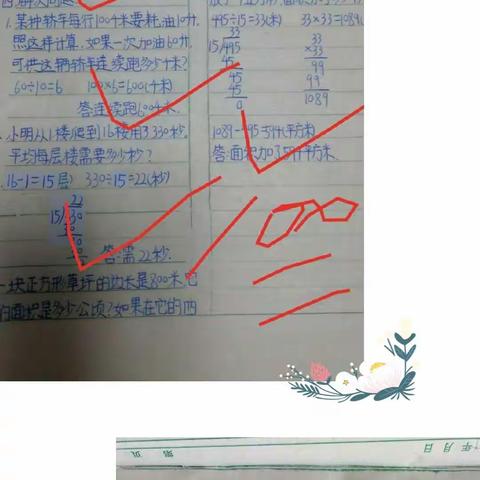 四.解决问题.
1.某种轿车每行100千米要耗油10升.
照这样计算.如果一次加油60升.
可供这辆轿车连续跑多少千米?
60÷10=6 100×6=600(千米)
答:连续跑600千米.
小明从1楼爬到16楼用了330秒.
平均每层楼需要多少秒?
16-1=15层) 330÷15=22(秒)
22
15
答:需22秒.
一块正方形草坪的边长是800米,它
的面积是多少公顷?如果在它的四
495÷15=33(米) 33×33=1089(
33 33
15 495 ×33
45 99
45 99
45 1089
0
1089-495=594(平方米)
答:面积加了594平方米.
100
年 月 日
第 页